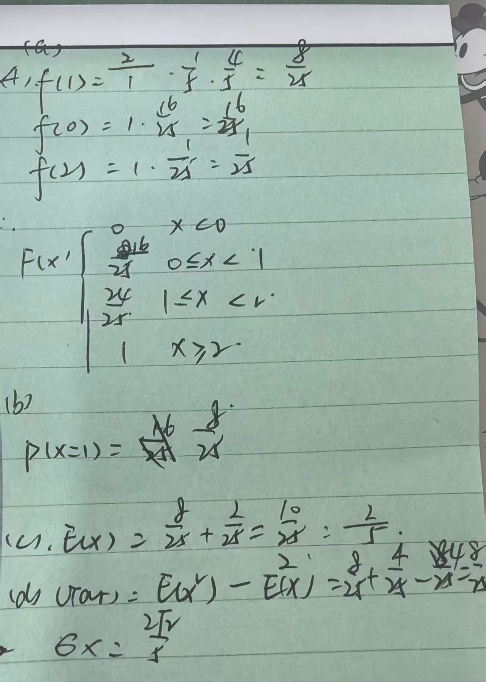 (a)
A, f(1) = 2/1 · 1/5 · 4/5 = 8/25
f(0) = 1 · 16/25 = 16/25
f(2) = 1 · 1/25 = 1/25
∴
F(x) { 0 x<0
16/25 0≤x<1
24/25 1≤x<2
1 x≥2
(b)
P(x=1) = 8/25
(c). E(x) = 8/25 + 2/25 = 10/25 = 2/5.
(d) Var) = E(x²) - E(x)² = 8/25 + 4/25 - 4/25 = 8/25
6x = 2√2/5